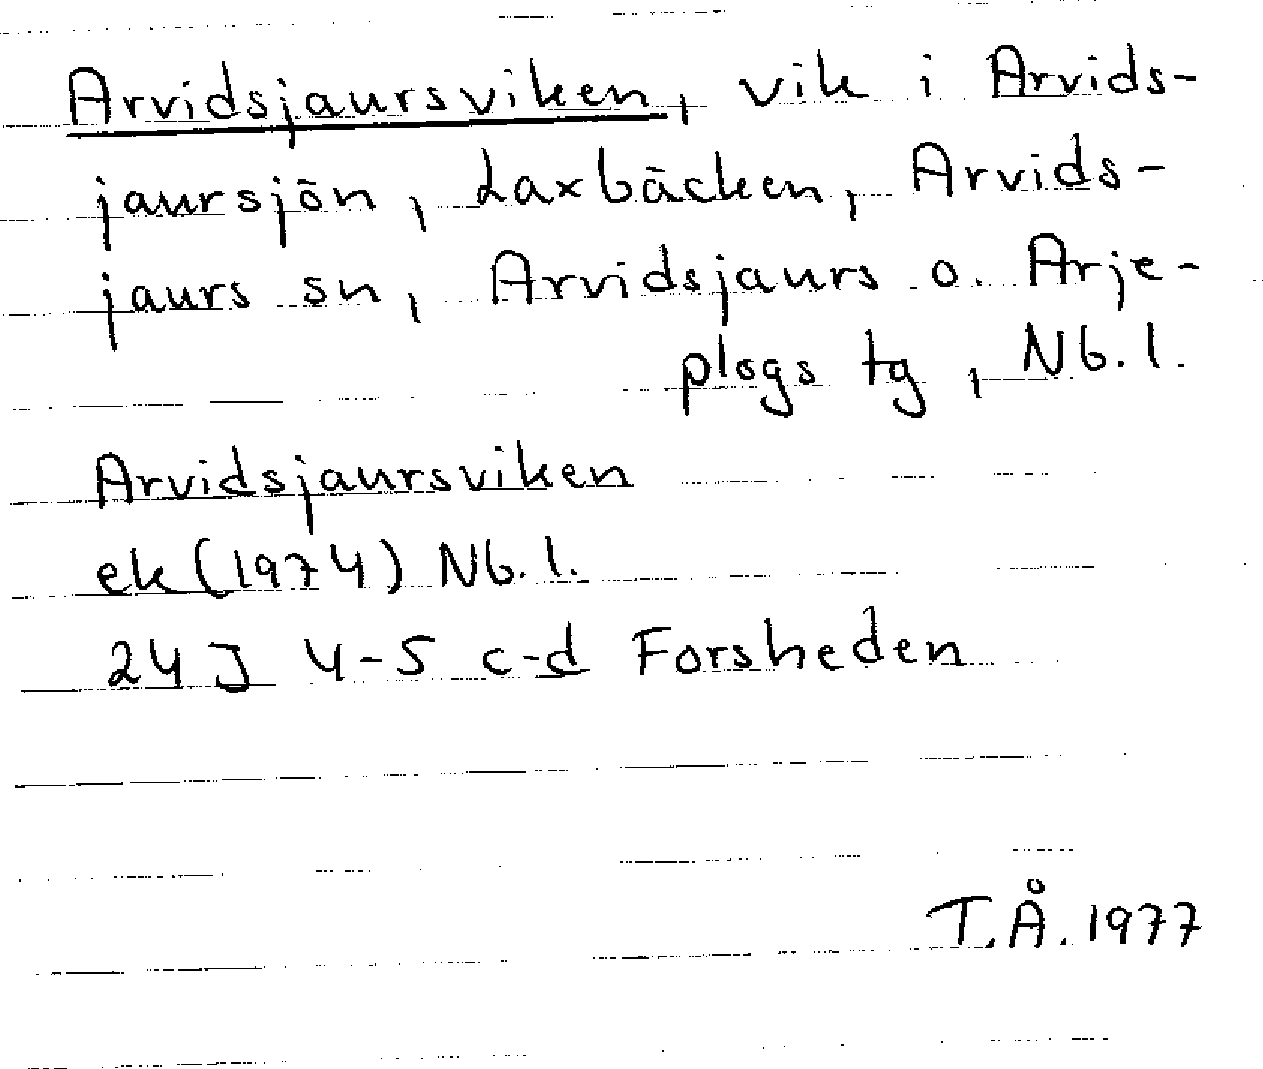 Arvidsjaursviken, vik i Arvids-
jaursjön, Laxbäcken, Arvids-
jaurs sn, Arvidsjaurs o. Arje-
plogs tg, Nb. l.
Arvidsjaursviken
ek (1974) Nb. l.
24 J 4-5 c-d Forsheden
T.Å. 1977